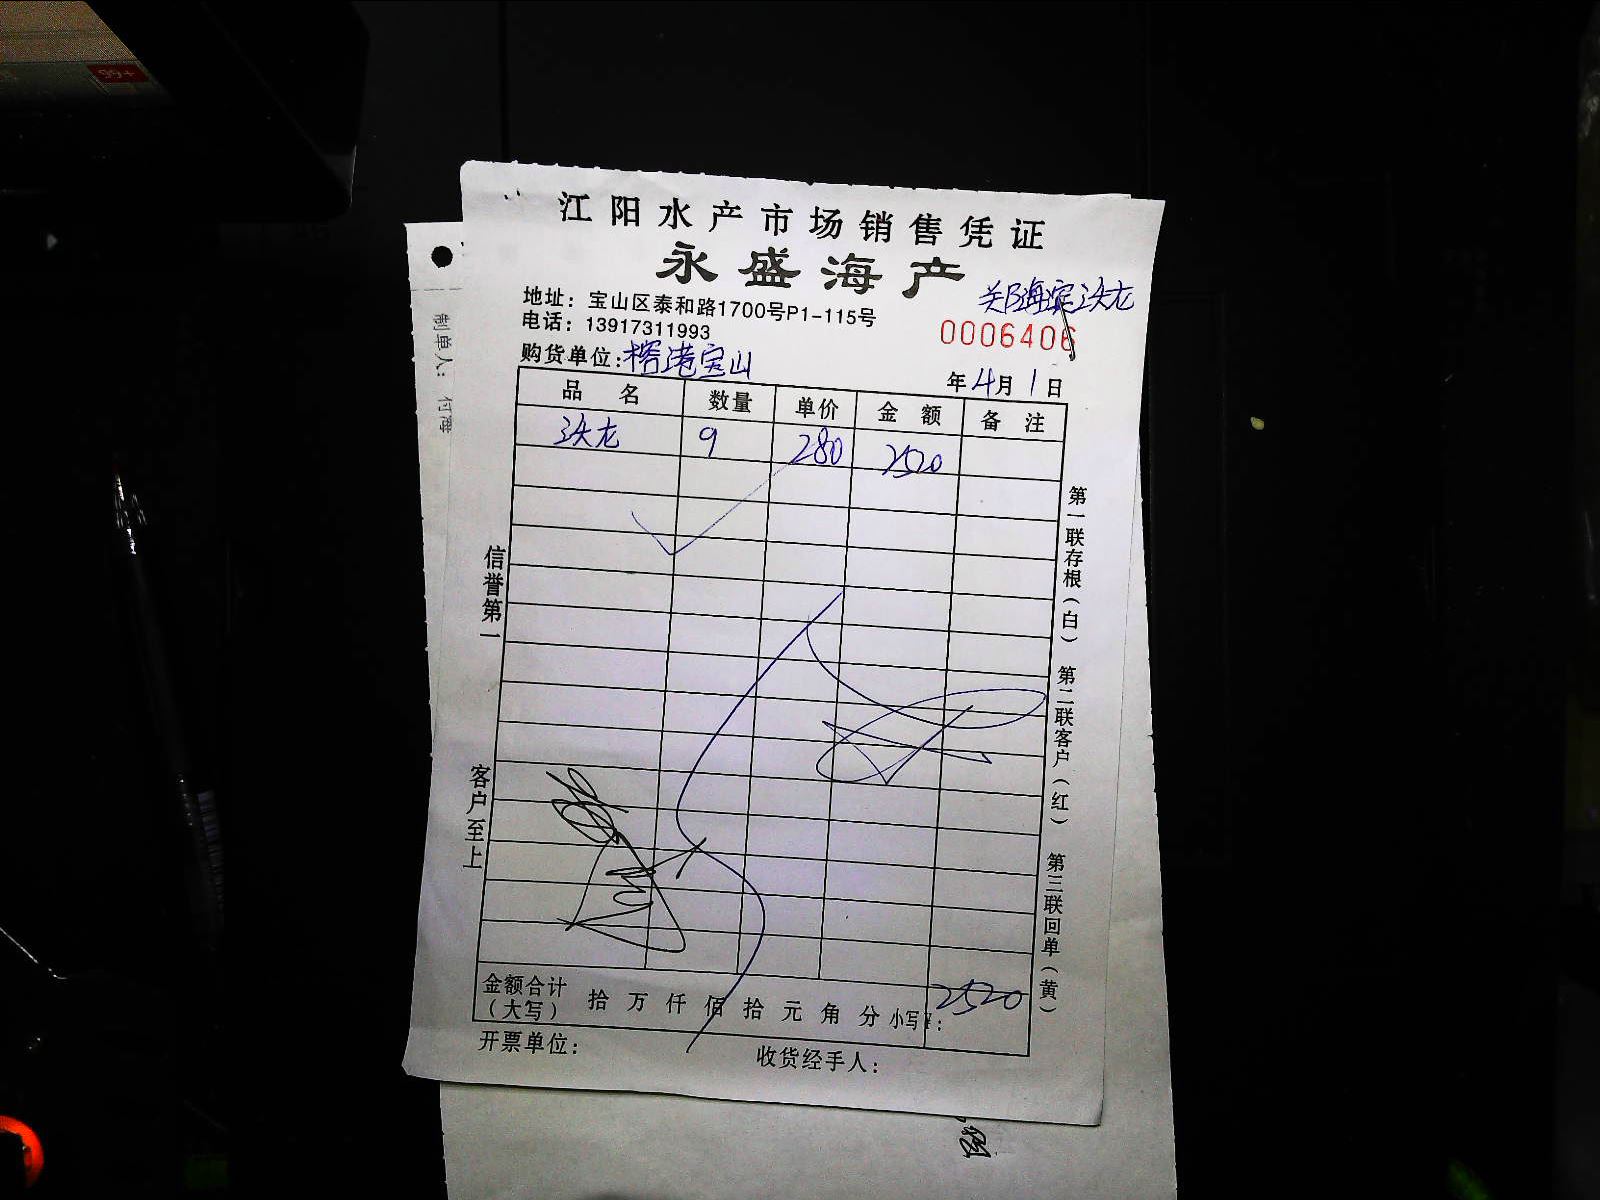 99+
江阳水产市场销售凭证
永盛海产
郑海滨沃龙
地址：宝山区泰和路1700号P1-115号
0006406
电话：13917311993
购货单位：榕港宝山
年4月1日
品名 数量 单价 金额 备注
沃龙 9 280 2520
信誉第一
客户至上
第一联存根（白）
第二联客户（红）
第三联回单（黄）
金额合计（大写） 拾万仟佰拾元角分 小写￥： 2520
开票单位： 收货经手人：
制单人：何海